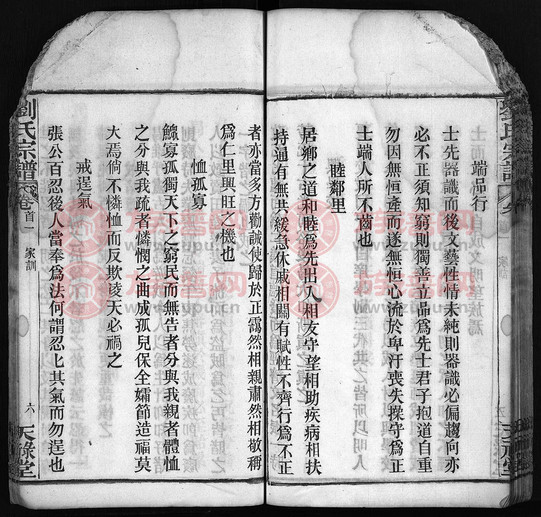 端品行
士先器識而後文藝性情未純則器識必偏趨向亦
必不正須知窮則獨善立品為先士君子抱道自重
勿因無恒產而遂無恒心流於卑汙喪失操守為正
士端人所不齒也
睦鄰里
居鄉之道和睦為先出入相友守望相助疾病相扶
持通有無共緩急休戚相關有賦性不齊行為不正
者亦當多方勸誡使歸於正靄然相親肅然相敬稱
為仁里興旺之機也
恤孤寡
鰥寡孤獨天下之窮民而無告者分與我親者體恤
之分與我疏者憐憫之曲成孤兒保全孀節造福莫
大焉倘不憐恤而反欺凌天必禍之
戒逞氣
張公百忍後人當奉為法何謂忍化其氣而勿逞也
劉氏宗譜
卷首一
家訓
六
天祿堂